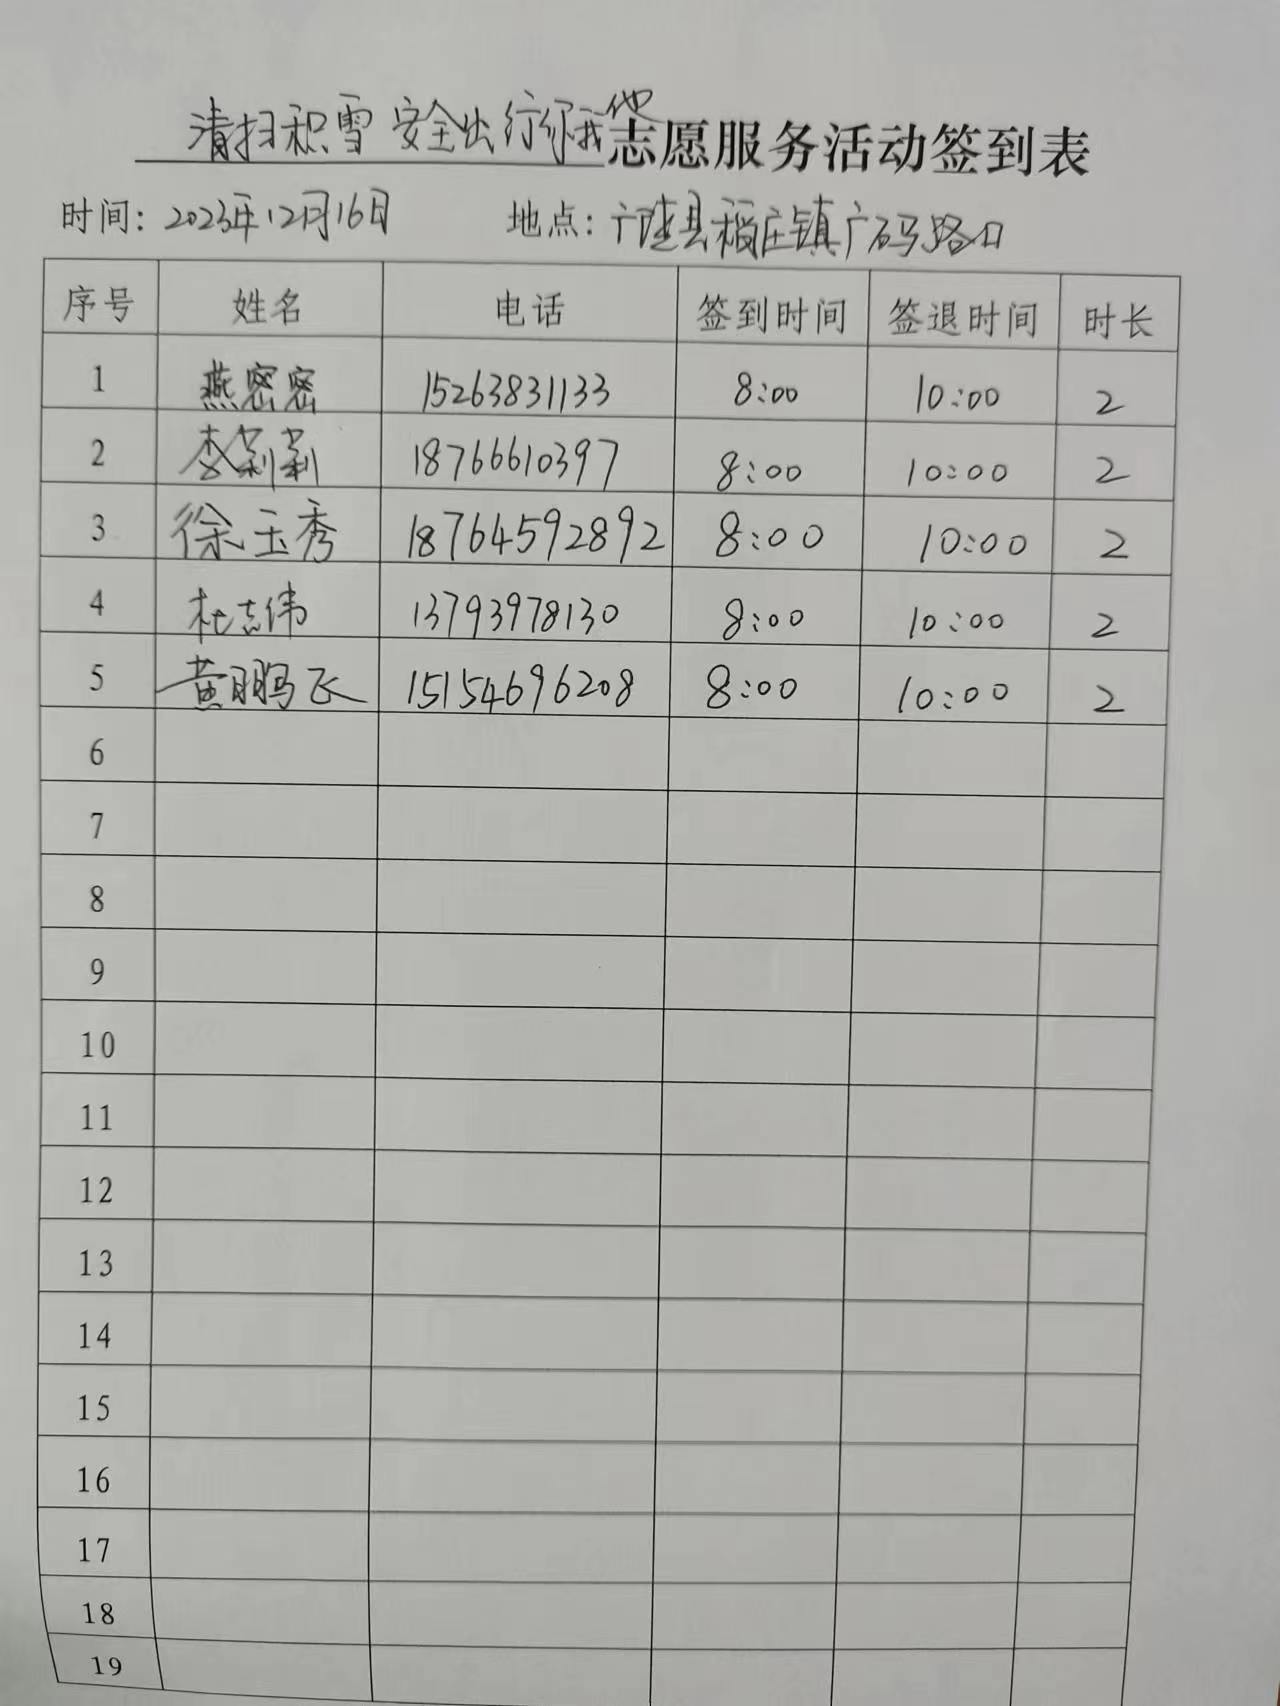 清扫积雪 安全出行你我他志愿服务活动签到表
时间：2023年12月16日 地点：广饶县稻庄镇广码路口
序号 姓名 电话 签到时间 签退时间 时长
1 燕密密 15263831133 8:00 10:00 2
2 李莉莉 18766610397 8:00 10:00 2
3 徐玉秀 18764592892 8:00 10:00 2
4 杜志伟 13793978130 8:00 10:00 2
5 黄鹏飞 15154696208 8:00 10:00 2
6
7
8
9
10
11
12
13
14
15
16
17
18
19